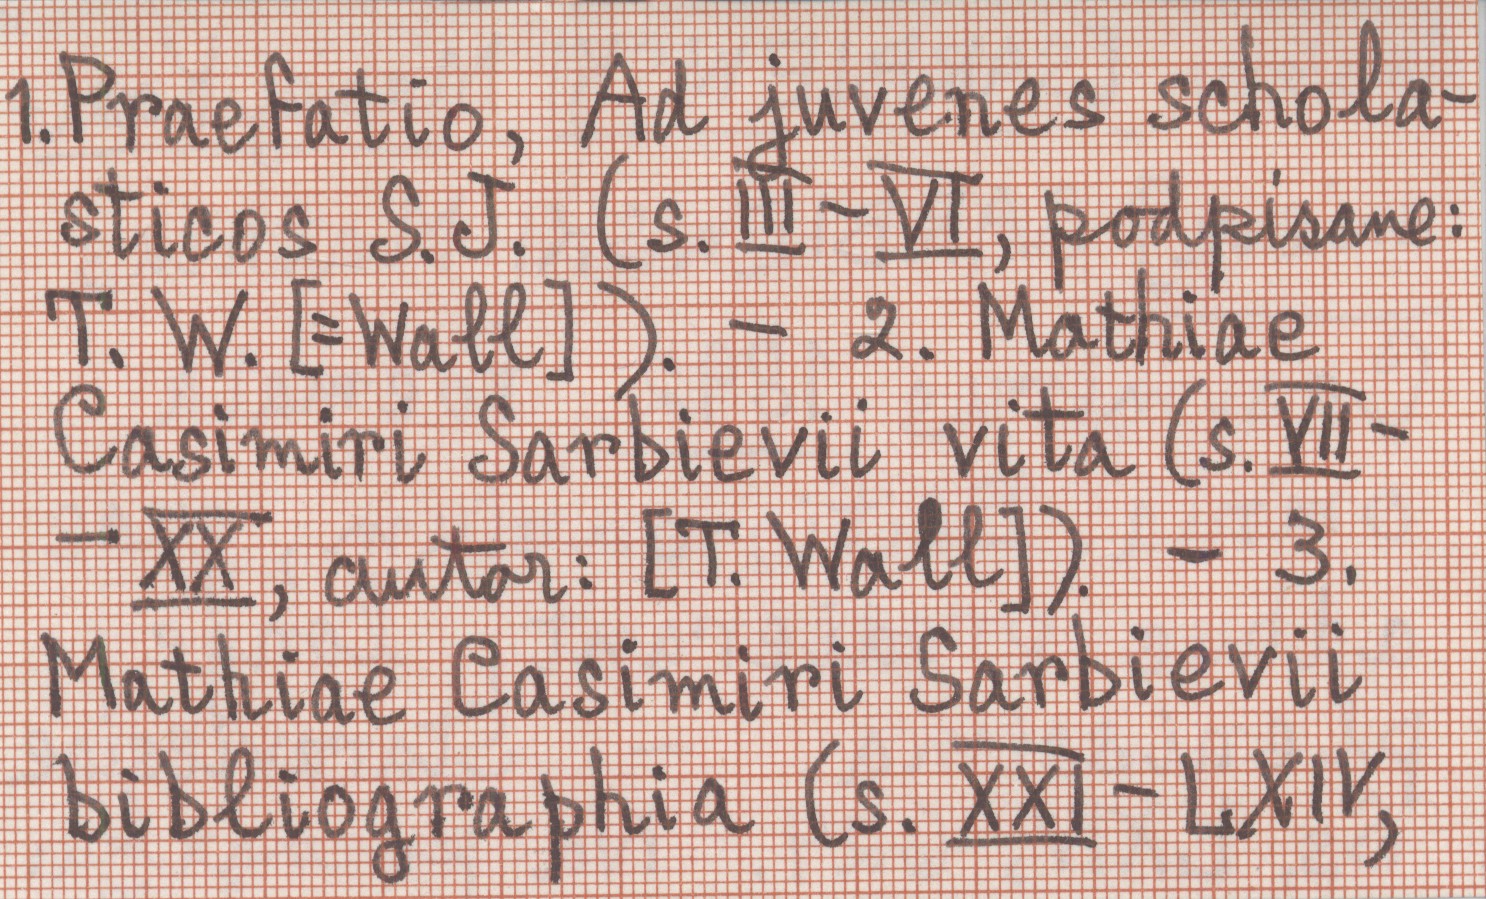 1. Praefatio, Ad juvenes schola-
sticos S.J. (s. III - VI, podpisane:
T. W. [=Wall]). - 2. Mathiae
Casimiri Sarbievii vita (s. VII -
- XX, autor: [T. Wall]). - 3.
Mathiae Casimiri Sarbievii
bibliographia (s. XXI - LXIV,